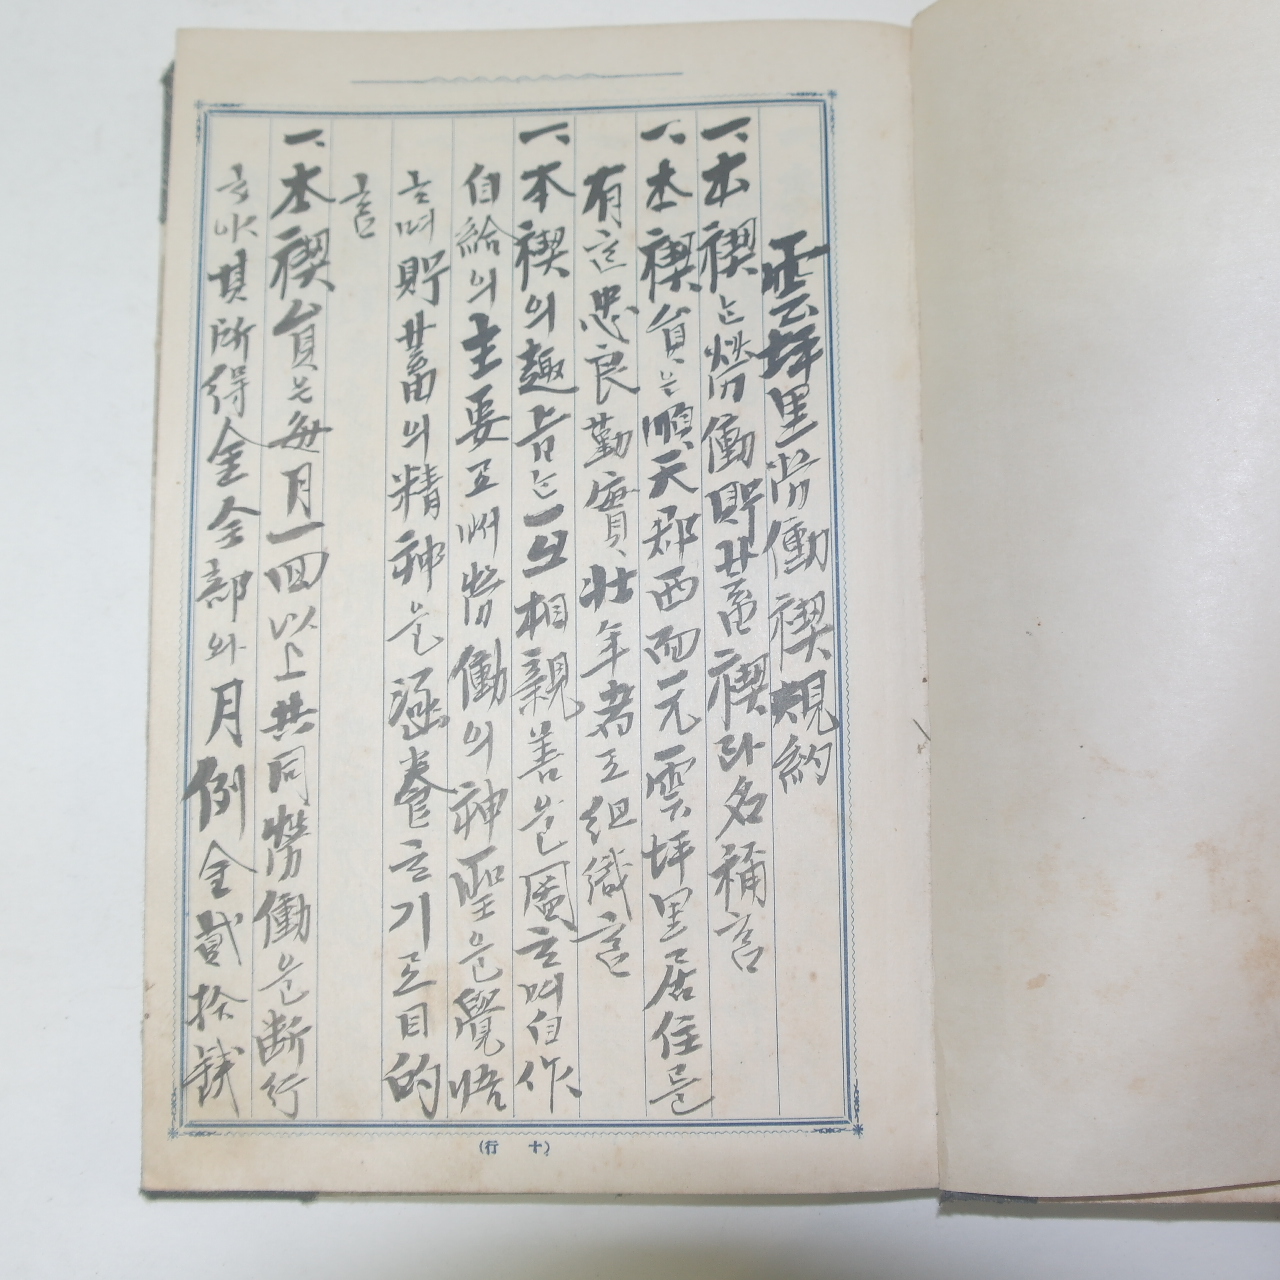 雲坪里労働禊規約
一、本禊는勞働貯蓄禊라名稱홈
一、本禊員은順天郡西面元雲坪里居住를
有한忠良勤實壯年者로組織홈
一、本禊의趣旨는一으로相親善을圖하며自作
自給의主要로써勞働의神聖을覺悟
하며貯蓄의精神을涵養하기로目的
홈
一、本禊員은每月一回以上共同勞働을断行
하야其所得金全部와月例金貳拾錢
(行十)